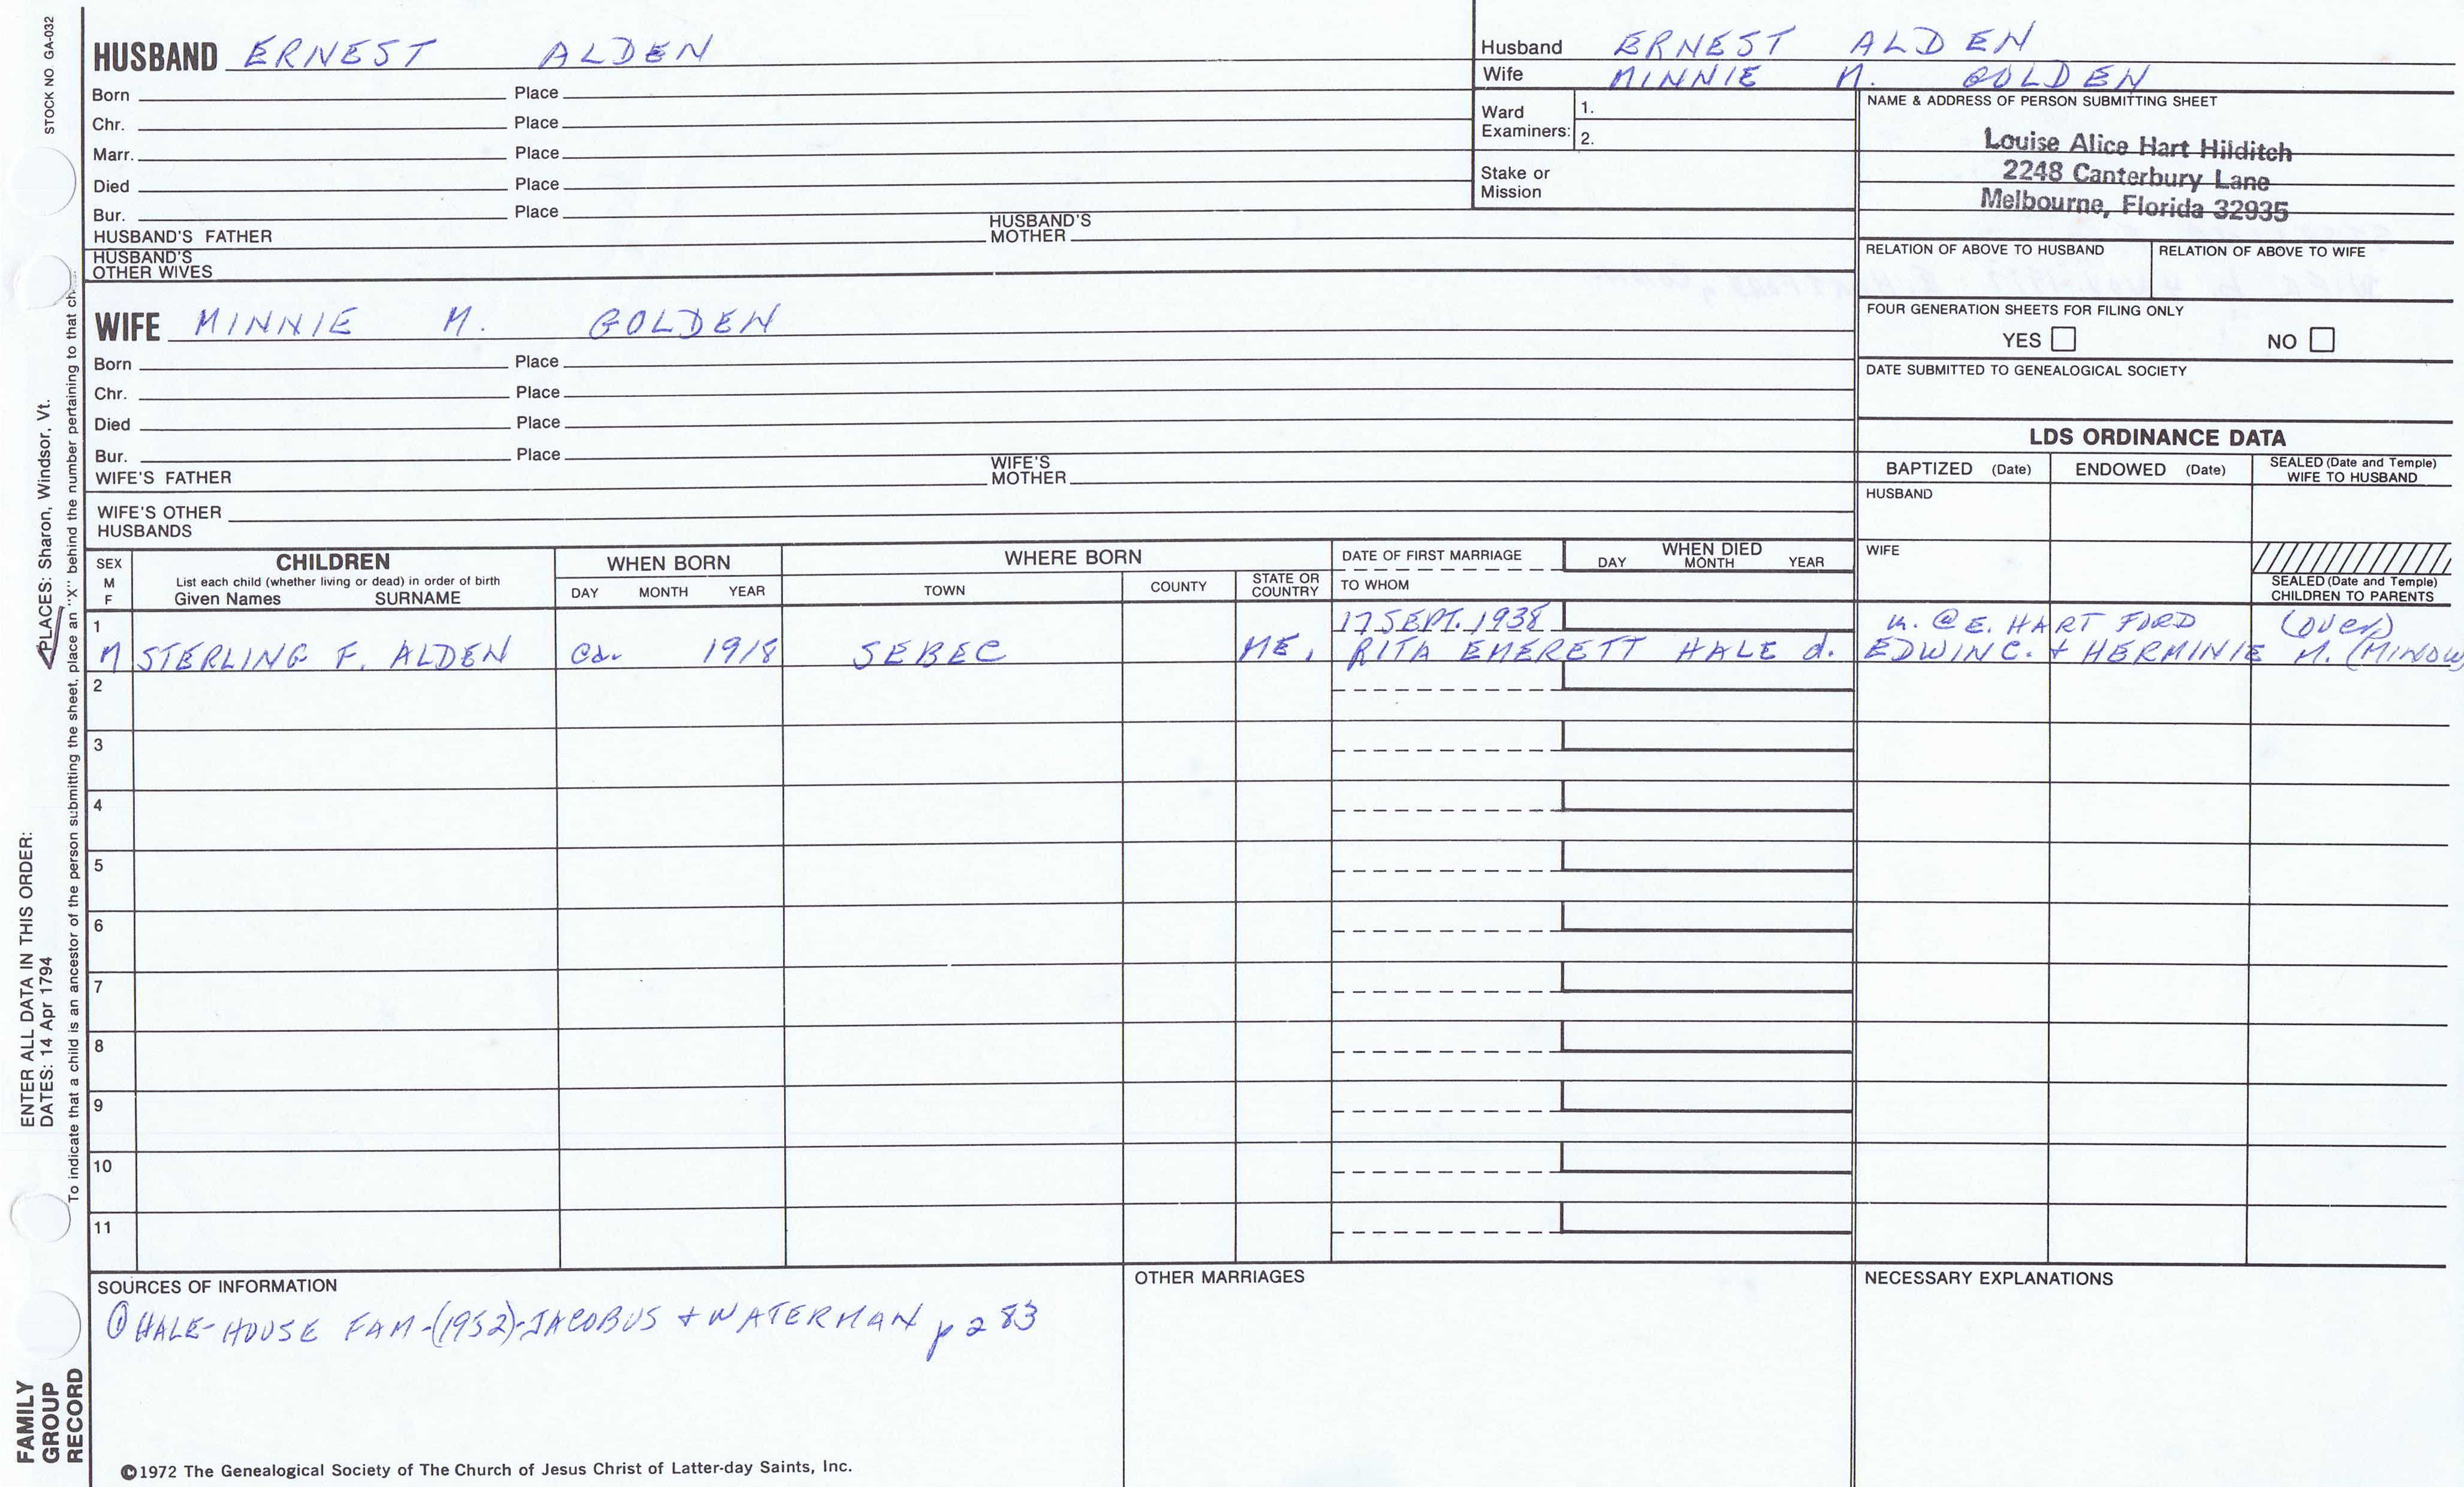 STOCK NO GA-032
HUSBAND ERNEST ALDEN
Born Place
Chr. Place
Marr. Place
Died Place
Bur. Place
HUSBAND'S FATHER HUSBAND'S MOTHER
HUSBAND'S OTHER WIVES
Husband ERNEST ALDEN
Wife MINNIE M. GOLDEN
Ward Examiners: 1.
2.
Stake or Mission
NAME & ADDRESS OF PERSON SUBMITTING SHEET
Louise Alice Hart Hilditch
2248 Canterbury Lane
Melbourne, Florida 32935
RELATION OF ABOVE TO HUSBAND RELATION OF ABOVE TO WIFE
FOUR GENERATION SHEETS FOR FILING ONLY
YES NO
DATE SUBMITTED TO GENEALOGICAL SOCIETY
WIFE MINNIE M. GOLDEN
Born Place
Chr. Place
Died Place
Bur. Place
WIFE'S FATHER WIFE'S MOTHER
WIFE'S OTHER HUSBANDS
LDS ORDINANCE DATA
BAPTIZED (Date) ENDOWED (Date) SEALED (Date and Temple) WIFE TO HUSBAND
HUSBAND
WIFE
SEALED (Date and Temple) CHILDREN TO PARENTS
SEX M F
CHILDREN
List each child (whether living or dead) in order of birth
Given Names SURNAME
WHEN BORN
DAY MONTH YEAR
WHERE BORN
TOWN COUNTY STATE OR COUNTRY
DATE OF FIRST MARRIAGE
TO WHOM
WHEN DIED
DAY MONTH YEAR
1 17 SEPT. 1938 m. @ E. HARTFORD (over)
M STERLING F. ALDEN ca. 1918 SEBEC ME, RITA EMERETT HALE d. EDWIN C. + HERMINIE M. (MINOW
2
3
4
5
6
7
8
9
10
11
SOURCES OF INFORMATION
① HALE-HOUSE FAM-(1952)-JACOBUS + WATERMAN p 283
OTHER MARRIAGES
NECESSARY EXPLANATIONS
©1972 The Genealogical Society of The Church of Jesus Christ of Latter-day Saints, Inc.
FAMILY GROUP RECORD
ENTER ALL DATA IN THIS ORDER:
DATES: 14 Apr 1794 PLACES: Sharon, Windsor, Vt.
To indicate that a child is an ancestor of the person submitting the sheet, place an "X" behind the number pertaining to that